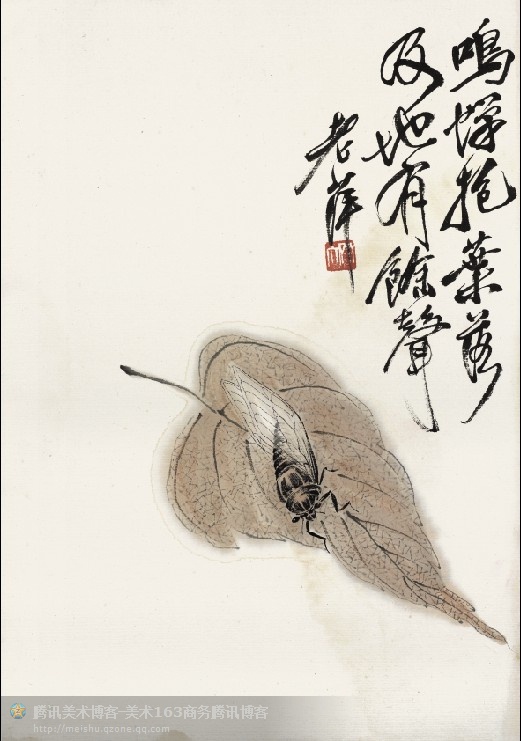 鳴蟬抱葉落
及地有餘聲
老萍
腾讯美术博客-美术163商务腾讯博客
http://meishu.qzone.qq.com